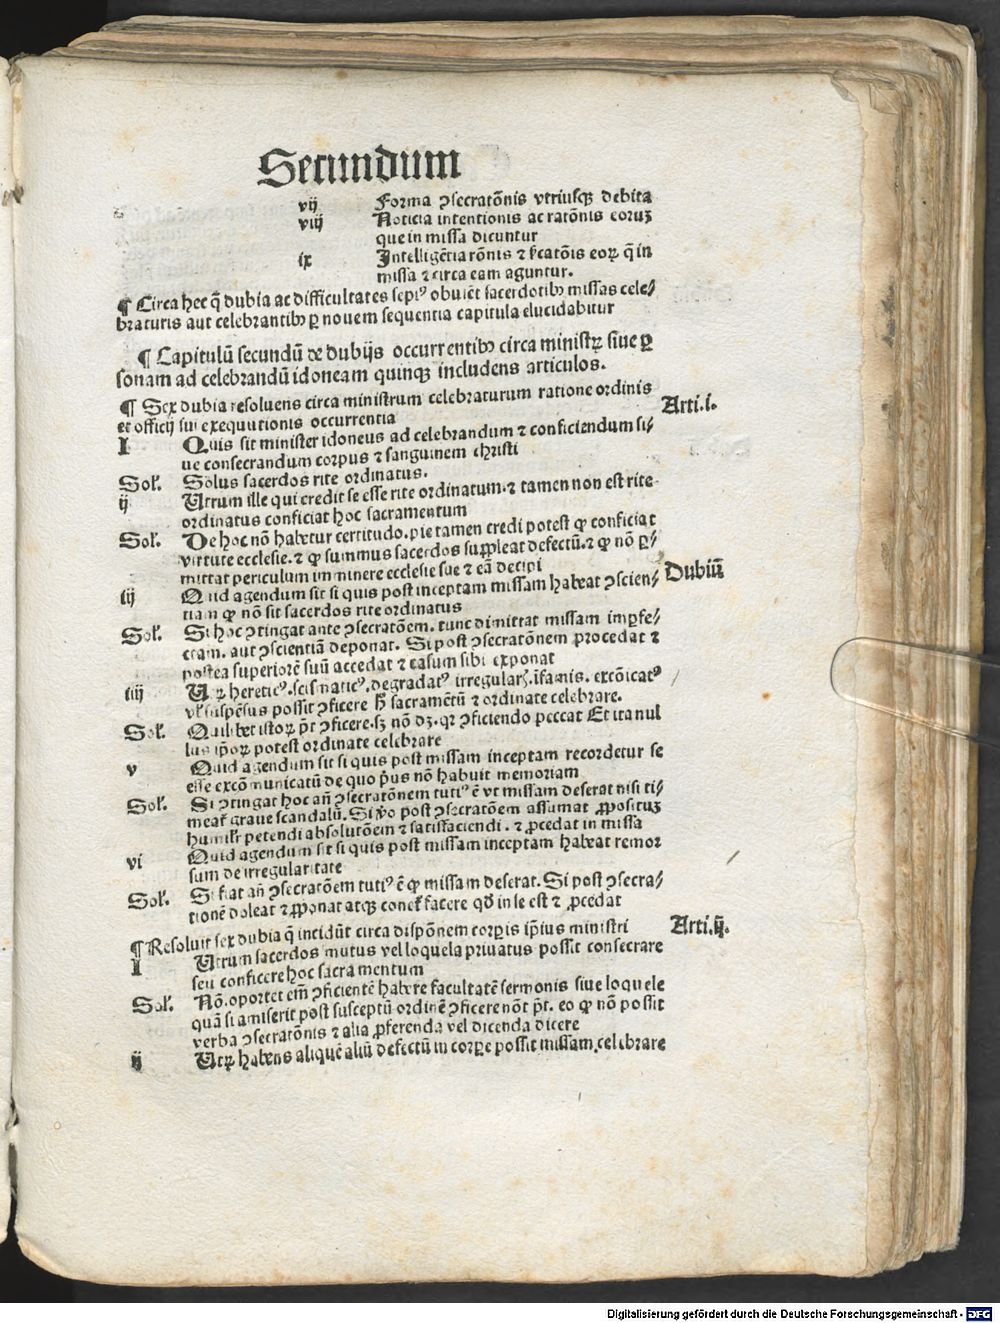 Secundum
vij Forma ꝯsecratõnis vtriusqꝫ debita
viij Noticia intentionis ac ratõnis eoruꝫ
que in missa dicuntur
ix Intelligẽtia rõnis ⁊ scatõis eoꝝ q̃ in
missa ⁊ circa eam aguntur.
¶ Circa hec q̃ dubia ac difficultates sepiꝰ obuiẽt sacerdotibꝰ missas cele⸗
braturis aut celebrantibꝰ ꝑ nouem sequentia capitula elucidabitur
¶ Capitulũ secundũ de dubijs occurrentibꝰ circa ministꝝ siue ꝑ
sonam ad celebrandũ idoneam quinqꝫ includens articulos.
¶ Sex dubia resoluens circa ministrum celebraturum ratione ordinis Arti.i.
et officij sui exequutionis occurrentia
I Quis sit minister idoneus ad celebrandum ⁊ conficiendum si⸗
ue consecrandum corpus ⁊ sanguinem christi
Sol. Solus sacerdos rite ordinatus.
ij Utrum ille qui credit se esse rite ordinatum.⁊ tamen non est rite
ordinatus conficiat hoc sacramentum
Sol. De hoc nõ habetur certitudo. pie tamen credi potest ꝙ conficiat
virtute ecclesie.⁊ ꝙ summus sacerdos suppleat defectũ.⁊ ꝙ nõ ꝑ⸗
mittat periculum imminere ecclesie sue ⁊ eã decipi
iij Quid agendum sit si quis post inceptam missam habeat ꝯscien⸗ Dubiũ
tiam ꝙ nõ sit sacerdos rite ordinatus
Sol. Si hoc ꝯtingat ante ꝯsecratõem. tunc dimittat missam imꝑfe⸗
ctam. aut ꝯscientiã deponat. Si post ꝯsecratõnem procedat ⁊
postea superiorẽ suũ accedat ⁊ casum sibi exponat
iiij Utꝝ hereticꝰ.scismaticꝰ.degradatꝰ irregularꝭ.ĩfamis. excõicatꝰ
vł suspẽsus possit ꝯficere h̃ sacramẽtũ ⁊ ordinate celebrare.
Sol. Quilibet istoꝝ p̃t ꝯficere.sꝫ nõ dꝫ.qꝛ ꝯficiendo peccat Et ita nul
lus ip̃oꝝ potest ordinate celebrare
v Quid agendum sit si quis post missam inceptam recordetur se
esse excõmunicatũ de quo p̃us nõ habuit memoriam
Sol. Si ꝯtingat hoc añ ꝯsecratõnem tutiꝰ ẽ vt missam deserat nisi ti⸗
meat̃ graue scandalũ. Si ṽo post ꝯsecratõem assumat ꝓpositũ
humilr̃ petendi absolutõem ⁊ satisfaciendi.⁊ ꝓcedat in missa
vi Quid agendum sit si quis post missam inceptam habeat remor
sum de irregularitate
Sol. Si fiat añ ꝯsecratõem tutiꝰ ẽ ꝙ missam deserat. Si post ꝯsecra⸗
tionẽ doleat ⁊ ꝓponat atqꝫ conet̃ facere qđ in se est ⁊ ꝓcedat
¶ Resoluit sex dubia q̃ incidũt circa dispõnem corꝑis ip̃ius ministri Arti.ij.
I Utrum sacerdos mutus vel loquela priuatus possit consecrare
seu conficere hoc sacramentum
Sol. Nõ.oportet em̃ ꝯficientẽ habere facultatẽ sermonis siue loquele
quã si amiserit post susceptũ ordinẽ ꝯficere nõ p̃t. eo ꝙ nõ possit
verba ꝯsecratõnis ⁊ alia ꝓferenda vel dicenda dicere
ij Utꝝ habens aliquẽ aliũ defectũ in corꝑe possit missam celebrare
Digitalisierung gefördert durch die Deutsche Forschungsgemeinschaft - DFG